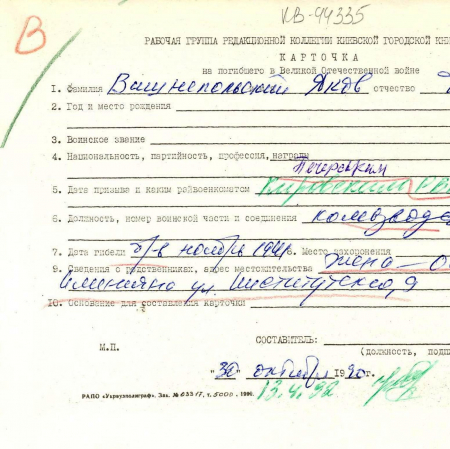 КВ-94335
В
РАБОЧАЯ ГРУППА РЕДАКЦИОННОЙ КОЛЛЕГИИ КИЕВСКОЙ ГОРОДСКОЙ КНИ
КАРТОЧКА
на погибшего в Великой Отечественной войне
1. Фамилия Вишнепольский Яков отчество
2. Год и место рождения
3. Воинское звание
4. Национальность, партийность, профессия, награды
Печерским
5. Дата призыва и каким райвоенкоматом Кировским РВ
6. Должность, номер воинской части и соединения комвзвода
7. Дата гибели б/в ноябрь 1941 8. Место захоронения
9. Сведения о родственниках, адрес местожительства жена — О
ул. Институтская, 9
10. Основание для составления карточки
СОСТАВИТЕЛЬ:
М.П. (должность, подп
"30" октября 1990г.
13.4.92
РАПО «Укрвузполиграф». Зак. № 633/7, т. 5000. 1990.